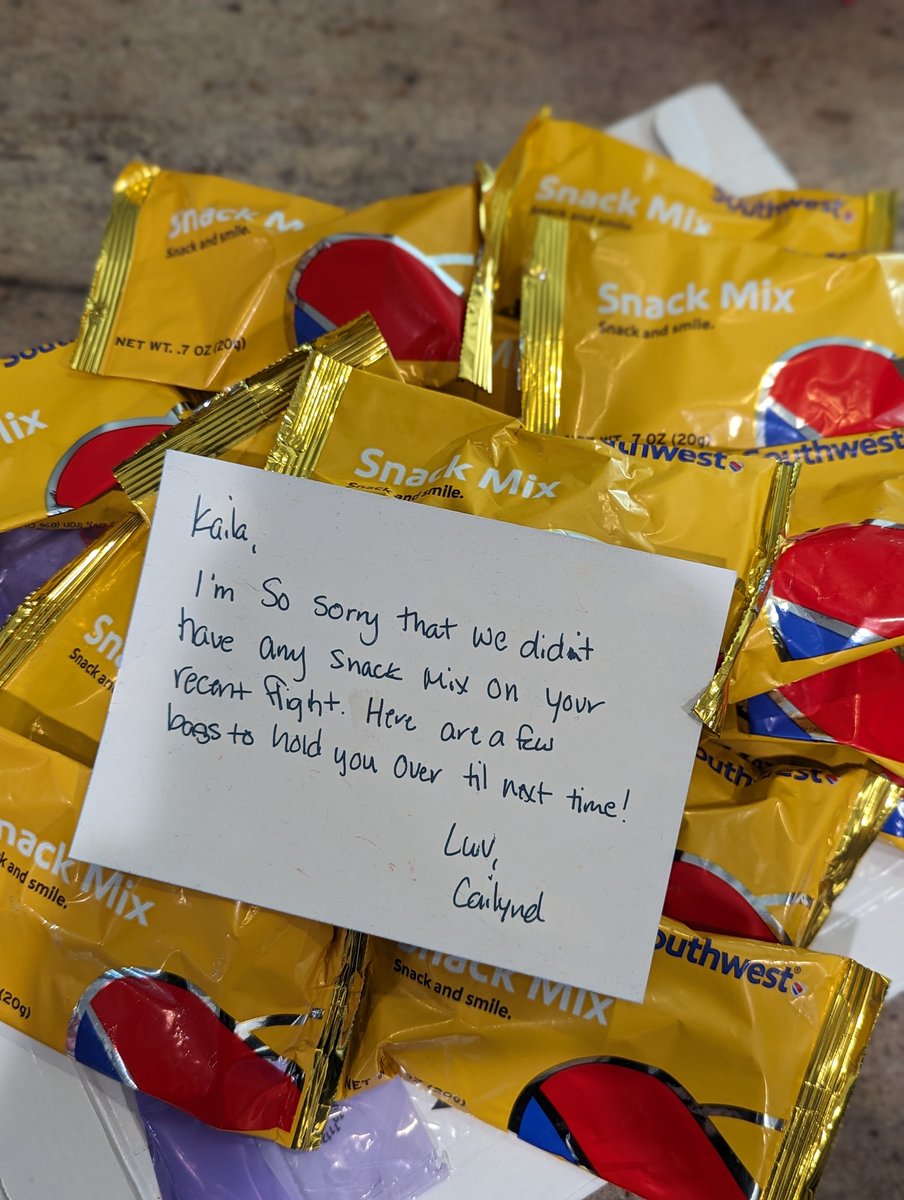 Snack Mix
Snack and smile.
NET WT. .7 OZ (20g)
Snack Mix
Southwest
Snack and smile.
Snack Mix
Snack and smile.
WT. .7 OZ (20g)
South
Mix
Snack Mix
Snack and smile.
Southwest
Southwest
Kaila,
I'm So sorry that we didn't
have any snack mix on your
recent flight. Here are a few
bags to hold you over til next time!
Luv,
Cailynd
Snack Mix
and smile.
(20g)
Snack Mix
Snack and smile.
Southwest®
(20g)